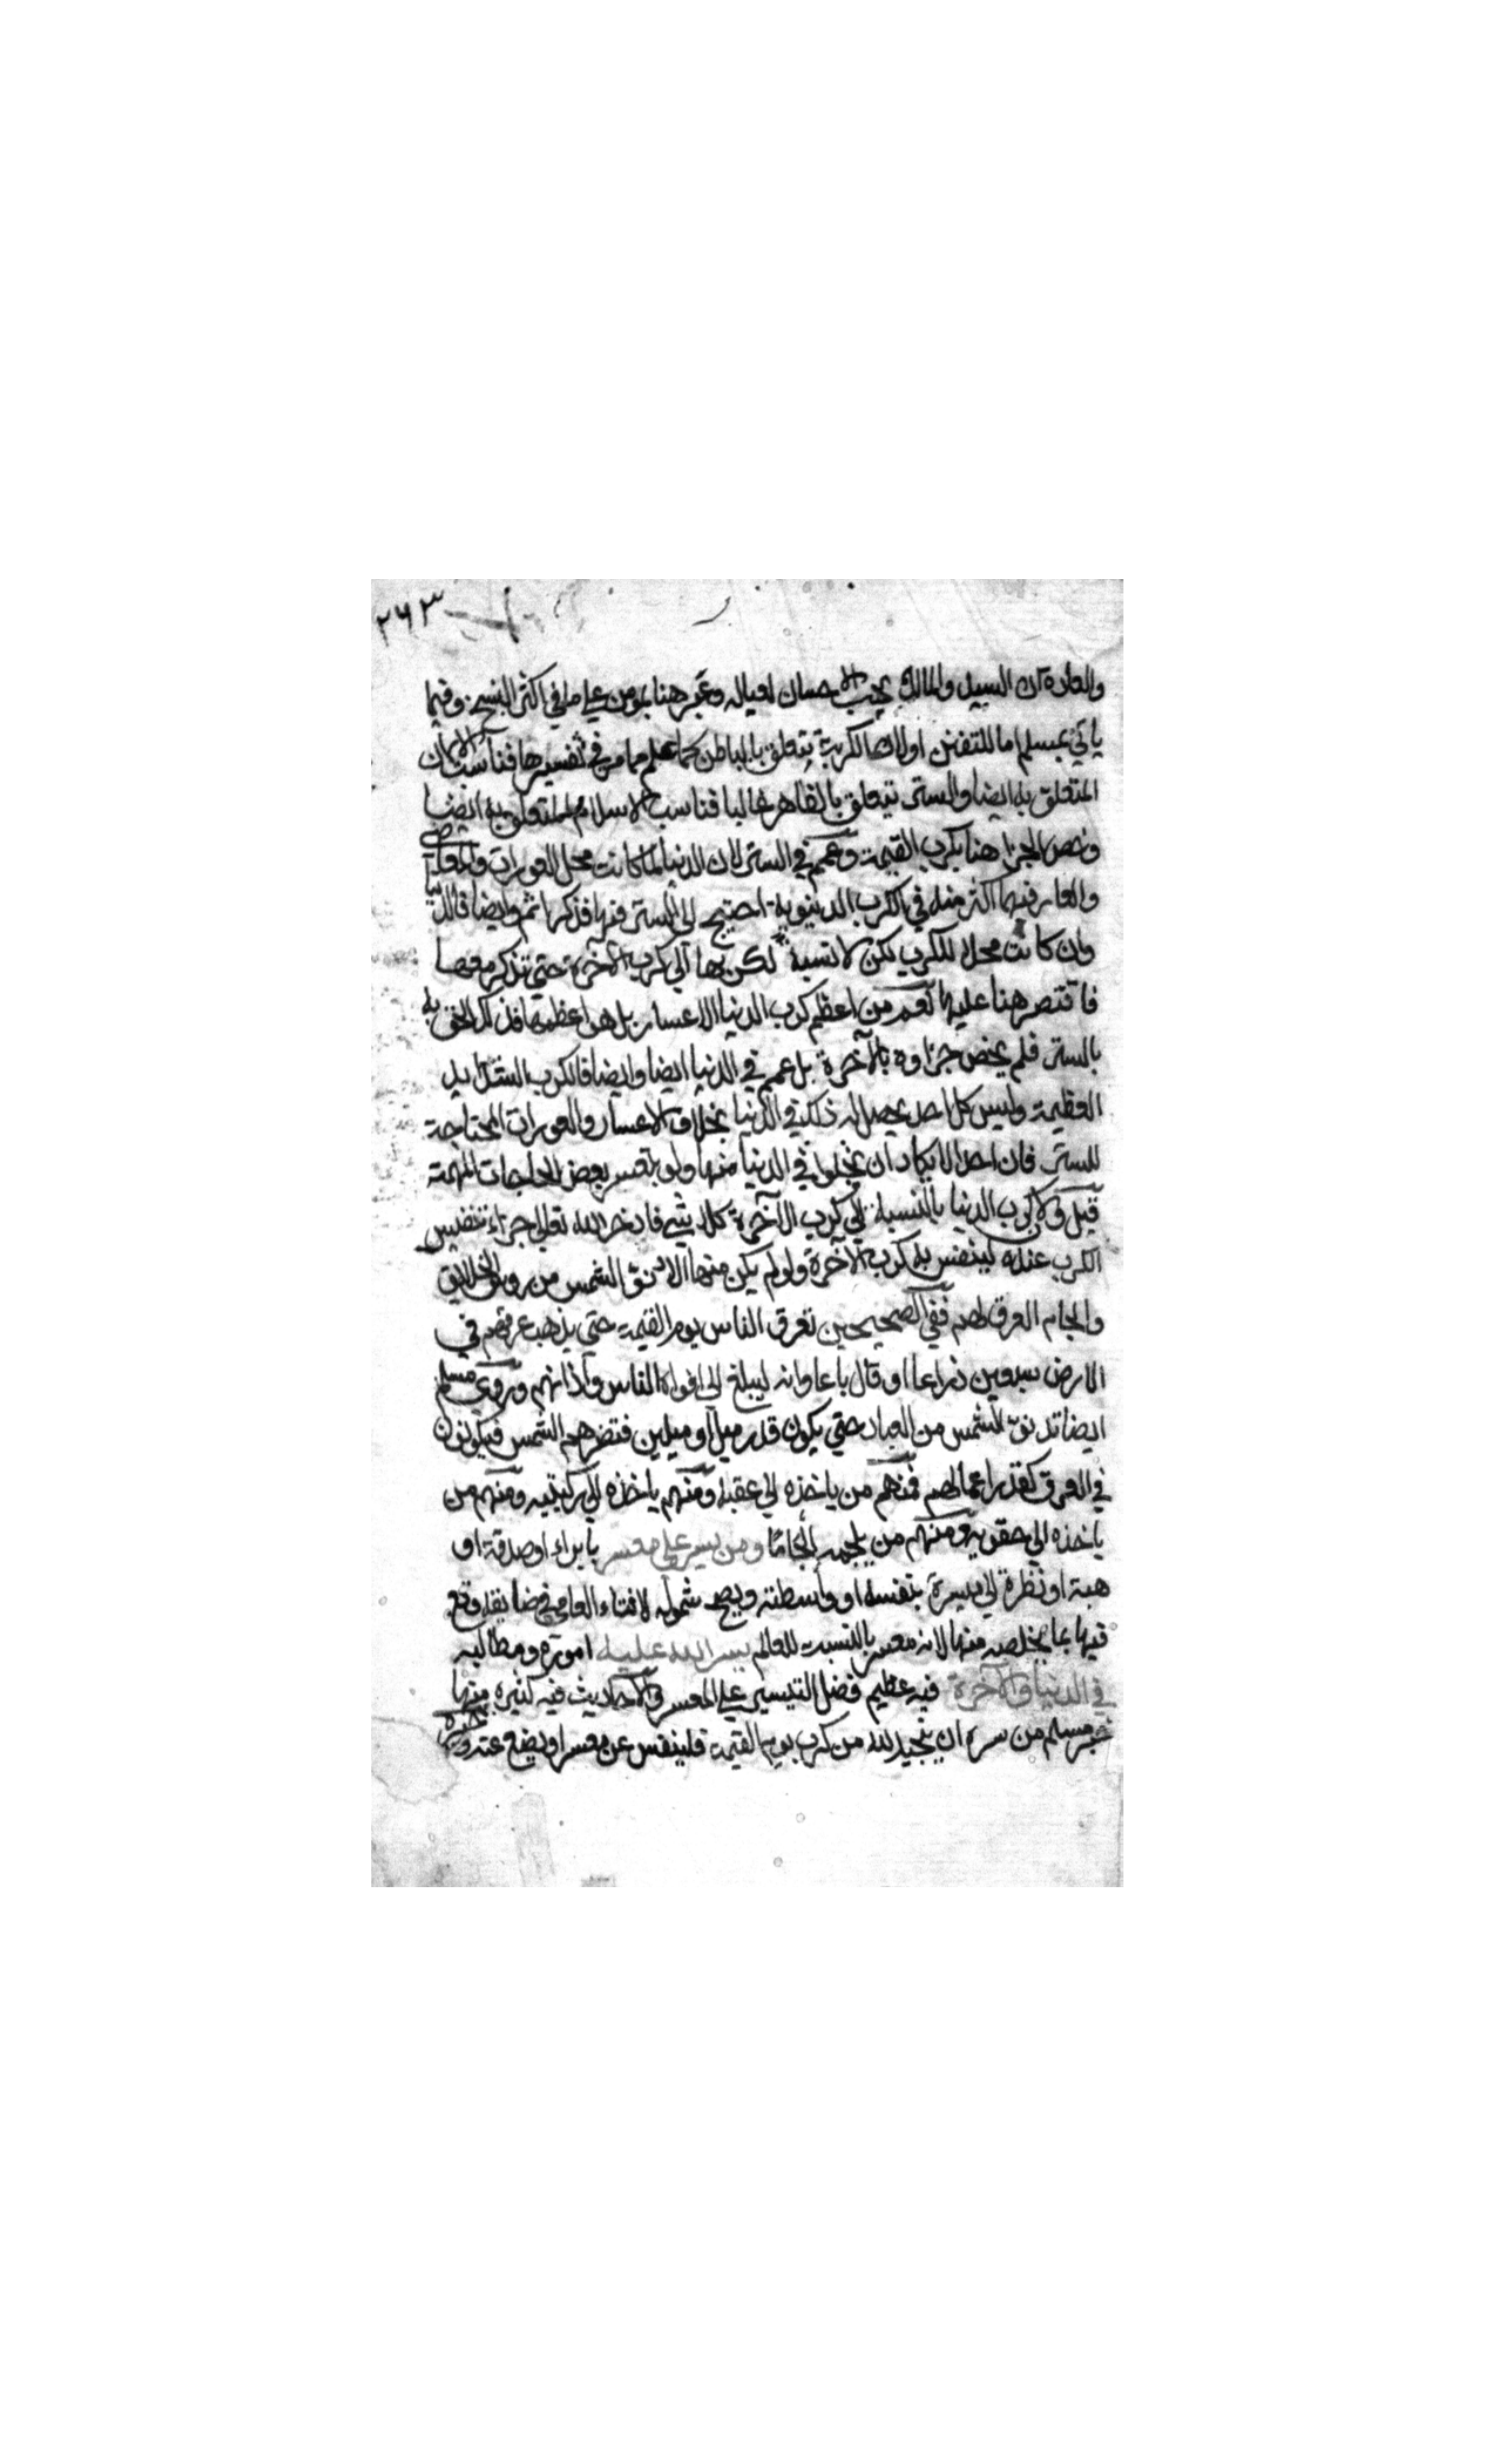 ٢٦٣
والعادة ان السيد والمالك يحب الاحسان لعياله وعبر هنا بمومن علي ما في اكثر النسخ وفيما
ياتي بمسلم اما للتفنن او لان الكربة يتعلق بالباطن كما علم مما مر في تفسيرها فناسب الايمان
المتعلق به ايضا والستر يتعلق بالظاهر غالبا فناسب الاسلام المتعلق به ايضا
وخص الجزا هنا بكرب القيمة وعمم في الستر لان الدنيا لما كانت محل العورات والمعاصي
والعار فيها اكثر منه في الكرب الدنيوية احتيج الي الستر فيها فذكرا ثم وايضا فالدنيا
وان كانت محلا للكرب لكن لا نسبة لكربها الي كرب الاخرة حتي تذكر معها
فاقتصر هنا عليها نعم من اعظم كرب الدنيا الاعسار بل هو اعظمها فلذلك الحق به
بالستر فلم يخص جزاوه بالآخرة بل عمم في الدنيا ايضا وايضا فالكرب الشدايد
العظيمة وليس كل احد يحصل له ذلك في الدنيا بخلاف الاعسار والعورات المحتاجة
للستر فان احدا لا يكاد ان يخلوا في الدنيا منها ولو بتعسر بعض الحاجات المهمة
قيل ولان كرب الدنيا بالنسبة الي كرب الآخرة كلا شي فادخر الله تعالي جزاء تنفيس
الكرب عنده لينفس به كرب الآخرة ولو لم يكن منها الا دنو الشمس من روس الخلايق
والجام العرق لهم ففي الصحيحين تعرق الناس يوم القيمة حتي يذهب عرقهم في
الارض سبعين ذراعا او قال باعا وانه ليبلغ الي افواه الناس وآذانهم وروي مسلم
ايضا تدنو الشمس من العباد حتي يكون قدر ميل او ميلين فتصهرهم الشمس فيكونون
في العرق كقدر اعمالهم فمنهم من ياخذه الي عقبه ومنهم ياخذه الي ركبتيه ومنهم من
ياخذه الي حقويه ومنهم من يلجمه الجاما ومن يسر علي معسر بابراء او صدقة او
هبة او نظرة الي ميسرة بنفسه او واسطته ويصح شموله لافتاء العامي في ضايقة وقع
فيها بما يخلصه منها لانه معسر بالنسبت للعالم يسر الله عليه اموره ومطالبه
في الدنيا والآخرة فيه عظيم فضل التيسير علي المعسر والاحاديث فيه كثيرة منها
خبر مسلم من سره ان ينجيه الله من كرب يوم القيمة فلينفس عن معسر او يضع عنه وخبره